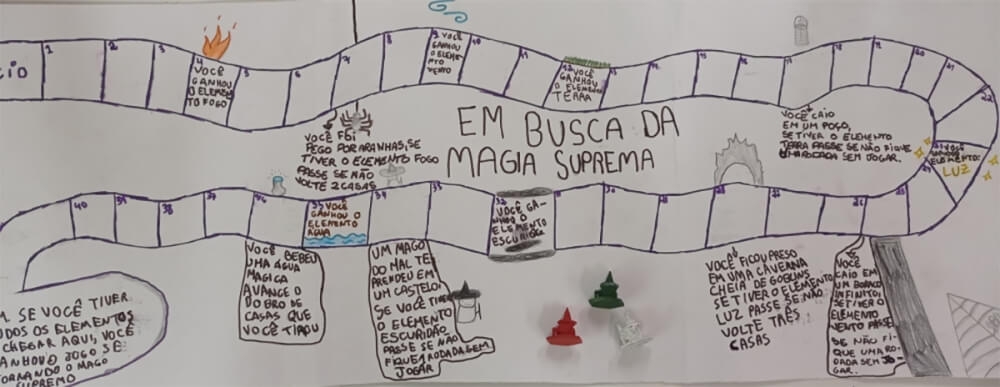 CIO
1
2
3
4
VOCÊ
GANHOU
O ELEMEN
TO FOGO
5
6
7
8
9 VOCÊ
GANHOU
O ELEME-
NTO
VENTO
10
11
12 VOCÊ
GANHOU
O ELEMENTO
TERRA
13
14
15
16
17
18
19
20
21
22
ELEMENTO:
LUZ
EM BUSCA DA
MAGIA SUPREMA
VOCÊ FOI
PEGO POR ARANHAS, SE
TIVER O ELEMENTO FOGO
PASSE SE NÃO
VOLTE 2 CASAS
VOCÊ CAIO
EM UM POÇO,
SE TIVER O ELEMENTO
TERRA PASSE SE NÃO FIQUE
RODADA SEM JOGAR.
40
39
38
37
36
35 VOCÊ
GANHOU O
ELEMENTO
AGUA
34
33
32
VOCÊ GA-
NHOU O
ELEMENTO
ESCURIDÃO
VOCÊ BEBEU
UMA ÁGUA
MAGICA
AVANCE O
DOBRO DE
CASAS QUE
VOCÊ TIROU
UM MAGO
DO MAL TE
PRENDEU EM
UM CASTELO,
SE VOCÊ TIVER
O ELEMENTO
ESCURIDÃO
PASSE SE NÃO
FIQUE 1 RODADA SEM
JOGAR
VOCÊ FICOU PRESO
EM UMA CAVERNA
CHEIA DE GOBLINS
SE TIVER O ELEMENTO
LUZ PASSE SE NÃO
VOLTE TRÊS
CASAS
VOCÊ
CAIO EM
UM BURACO
INFINITO,
SE TIVER O
ELEMENTO
VENTO PASSE
SE NÃO FI-
QUE UMA RO-
DADA SEM JO-
GAR.
M SE VOCÊ TIVER
UDOS OS ELEMENTOS
CHEGAR AQUI, VOCÊ
ANHOU O JOGO SE
TORNANDO O MAGO
SUPREMO